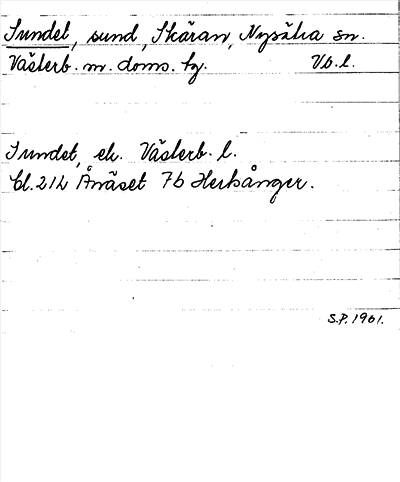 Sundet, sund, Skäran, Nysätra sn.
Västerb. n. doms. tg. Vb. l.
Sundet, ek. Västerb. l.
bl. 21L Ånäset 7b Herrsånger.
S.P. 1961.